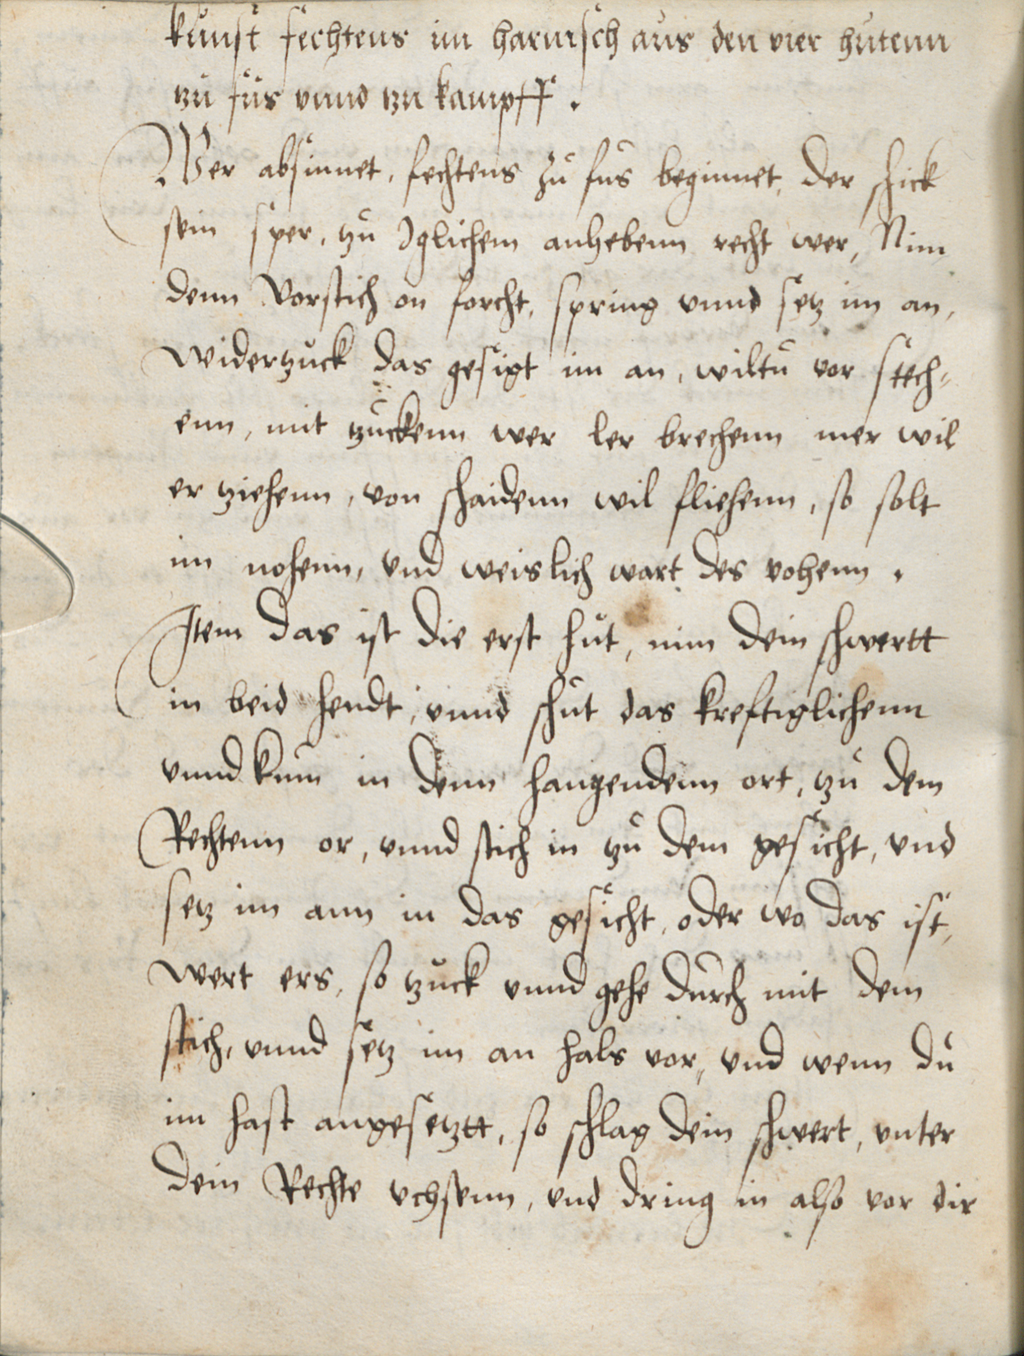 kunst fechtens im harnisch aus den vier hutenn
tzu fus vnnd tzu kampff .
Wer absinnet, fechtens zu fus beginnet, der schick
sein sper, tzu Iglichem anhebenn recht wer, Nim
denn Vorstich on forcht, spring vnnd setz im an,
widertzuck das gesigt im an, wiltu vor stech=
enn, mit tzuckenn wer ler brechenn mer wil
er tziehenn, von schaidenn wil fliehenn, so solt
im nohenn, vnd weislich wart des vohenn .
Item das ist die erst hut, nim dein schwertt
in beid hendt, vnnd schut das kreftiglichenn
vnnd kum in denn hangendenn ort, tzu dem
Rechtenn or, vnnd stich in tzu dem gesicht, vnd
setz im ann in das gesicht, oder wo das ist,
wert ers, so tzuck vnnd gehe durch mit dem
stich, vnnd setz im an hals vor, vnd wenn du
im hast angesetztt, so schlag dein schwert, vnter
dein Rechte vchsenn, vnd dring in also vor dir